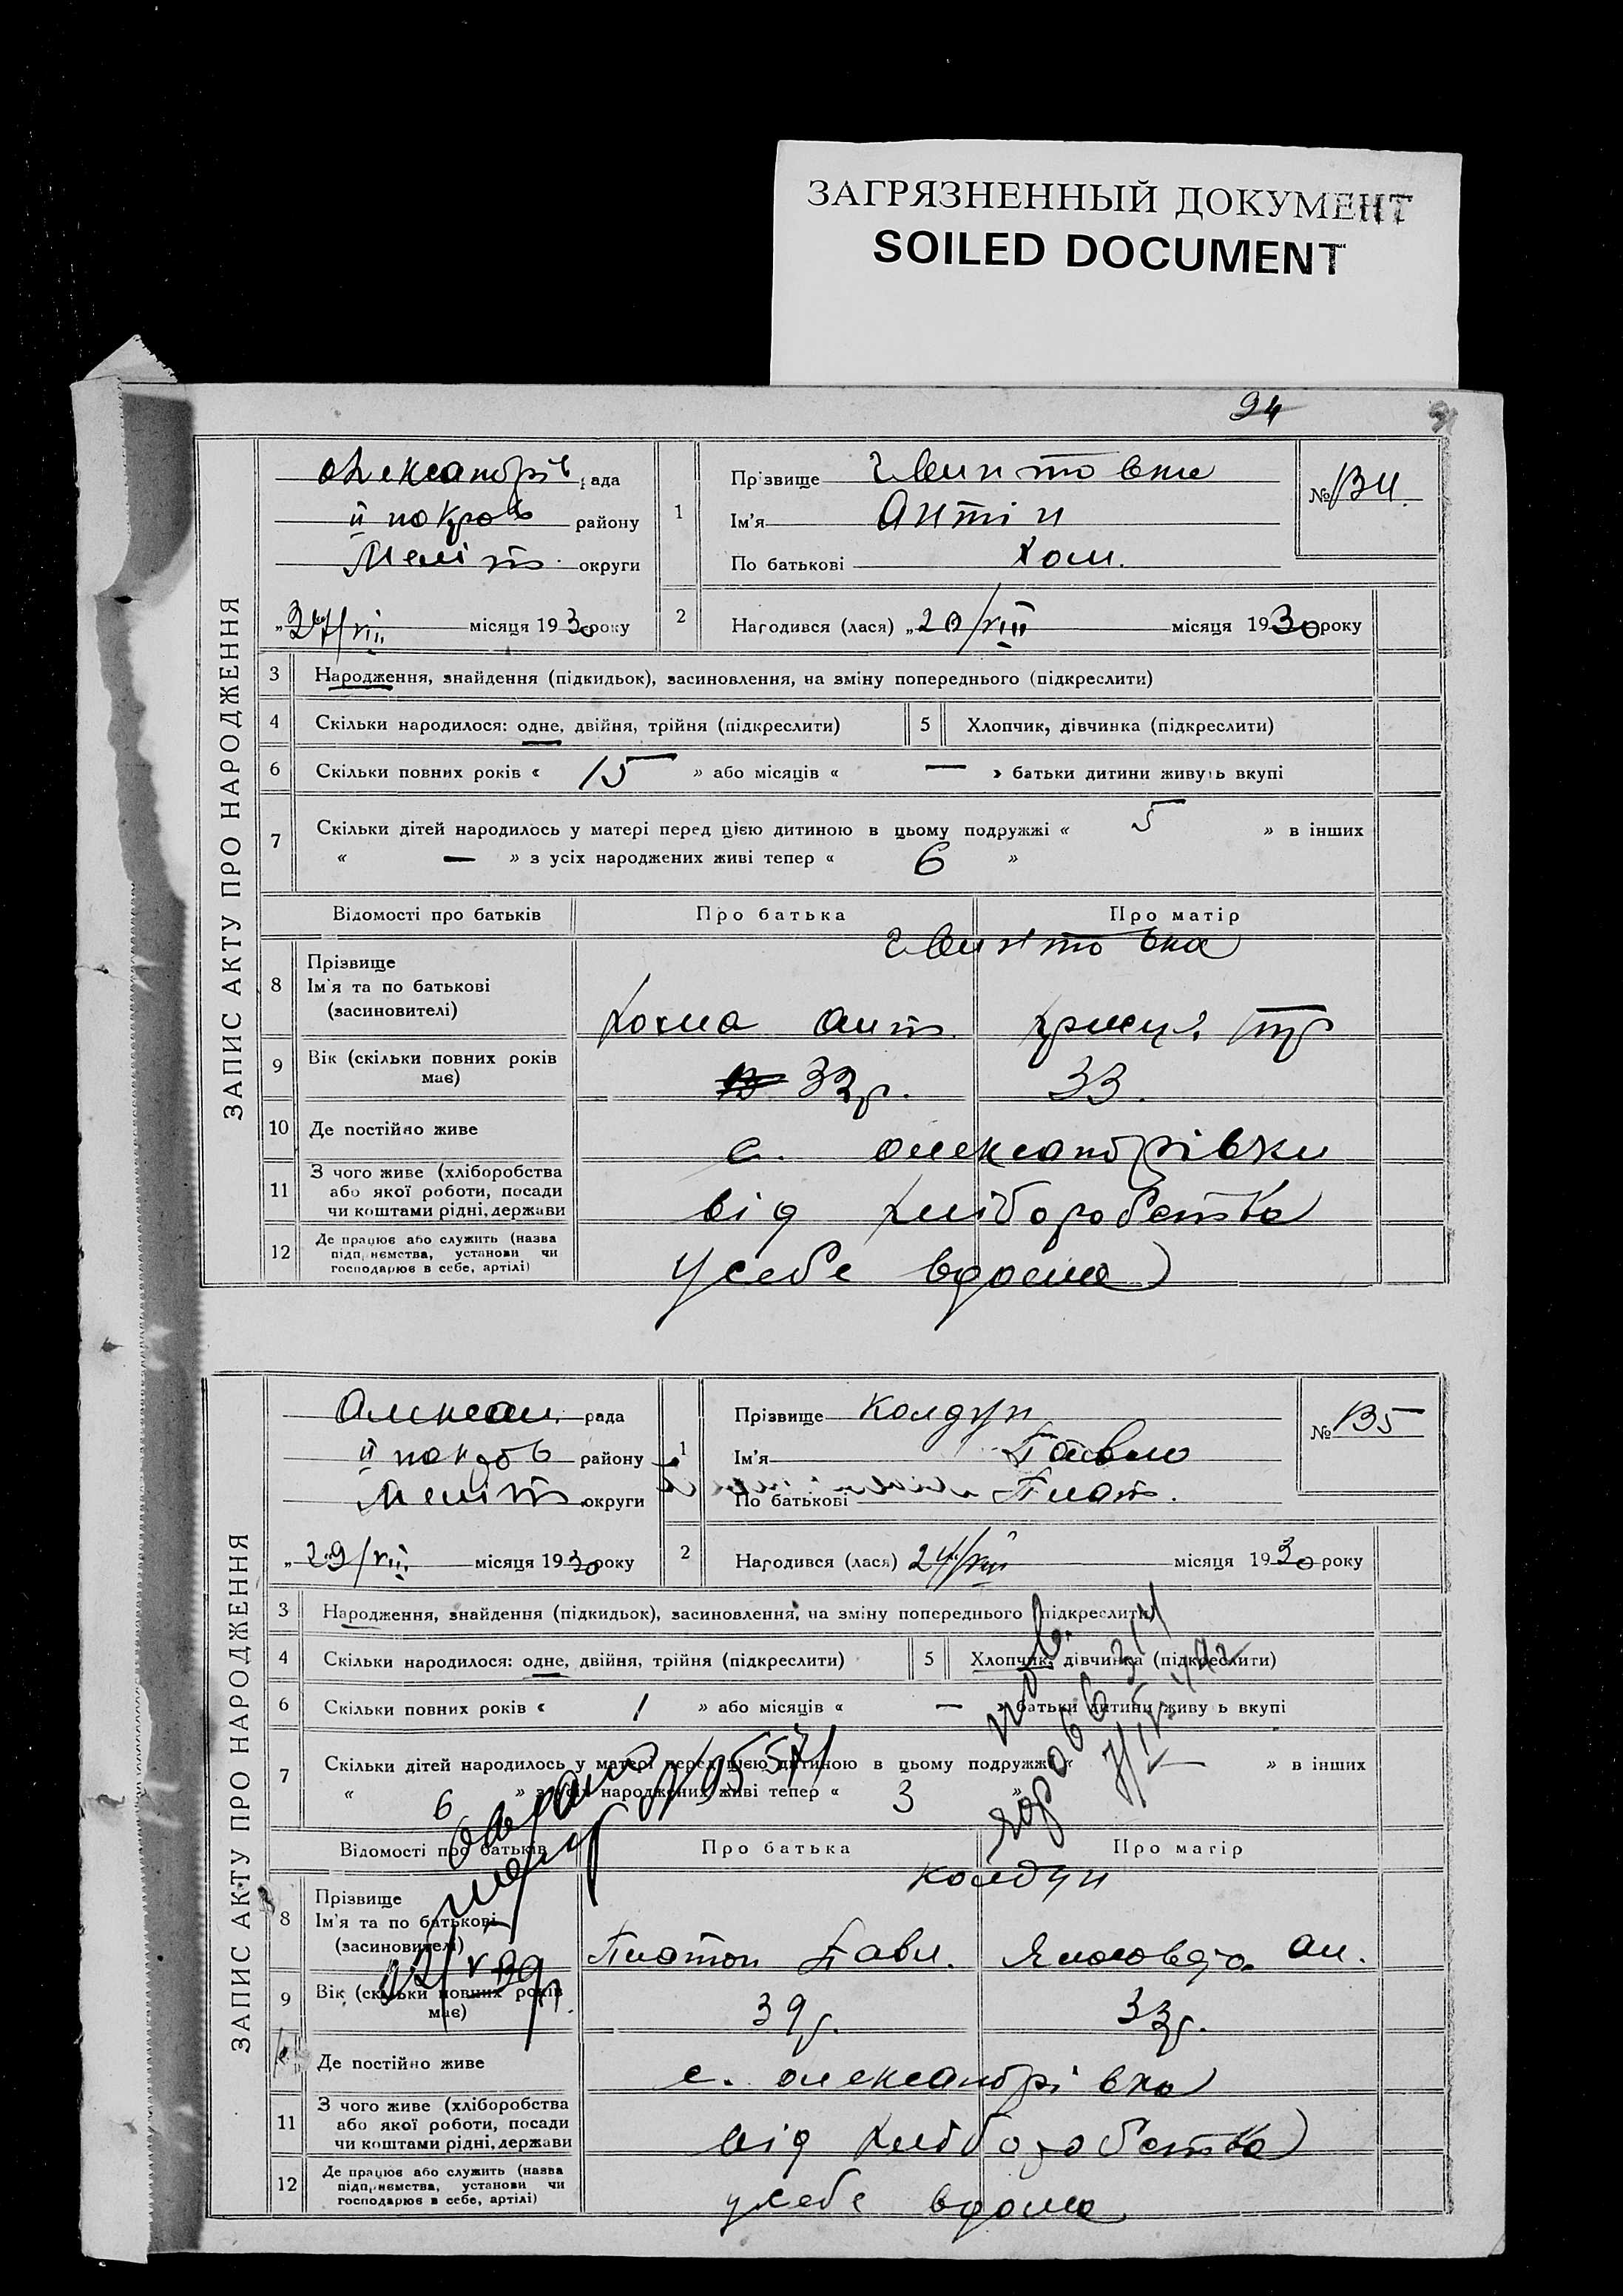 ЗАГРЯЗНЕННЫЙ ДОКУМЕНТ
SOILED DOCUMENT
94
ЗАПИС АКТУ ПРО НАРОДЖЕННЯ
Олександрів рада
ІІ покров району
Меліт. округи
"27/VIII місяця 1930 року
1
Прізвище
Ім'я Антін
По батькові Хом.
№ 134
2
Народився (лася) „20/VIII місяця 1930 року
3 Народження, знайдення (підкидьок), засиновлення, на зміну попереднього (підкреслити)
4 Скільки народилося: одне, двійня, трійня (підкреслити) 5 Хлопчик, дівчинка (підкреслити)
6 Скільки повних років « 15 » або місяців « — » батьки дитини живуть вкупі
7 Скільки дітей народилось у матері перед цією дитиною в цьому подружжі « 5 » в інших
« — » з усіх народжених живі тепер « 6 »
Відомості про батьків Про батька Про матір
8 Прізвище
Ім'я та по батькові
(засиновителі)
Хома Ант.
9 Вік (скільки повних років має) 32р. 33.
10 Де постійно живе с. олександрівки
11 З чого живе (хліборобства або якої роботи, посади чи коштами рідні, держави від хліборобства
12 Де працює або служить (назва підприємства, установи чи господарює в себе, артілі) у себе вдома
ЗАПИС АКТУ ПРО НАРОДЖЕННЯ
Олександ. рада
ІІ покров району
Меліт округи
„29/VIII місяця 1930 року
1
Прізвище Колдун
Ім'я Павло
По батькові Плат.
№ 135
2
Народився (лася) 24/VIII місяця 1930 року
3 Народження, знайдення (підкидьок), засиновлення, на зміну попереднього (підкреслити)
4 Скільки народилося: одне, двійня, трійня (підкреслити) 5 Хлопчик, дівчинка (підкреслити)
6 Скільки повних років « 1 » або місяців « — » батьки дитини живу ь вкупі
7 Скільки дітей народилось у матері перед цією дитиною в цьому подружжі « — » в інших
« 6 » з усіх народжених живі тепер « 3 »
Відомості про батьків Про батька Про матір
Колдун
8 Прізвище
Ім'я та по батькові
(засиновителі)
Платон Павл.
9 Вік (скільки повних років має) 39р. 33р.
Де постійно живе с. олександрівка
11 З чого живе (хліборобства або якої роботи, посади чи коштами рідні, держави від хліборобства
12 Де працює або служить (назва підприємства, установи чи господарює в себе, артілі) у себе вдома